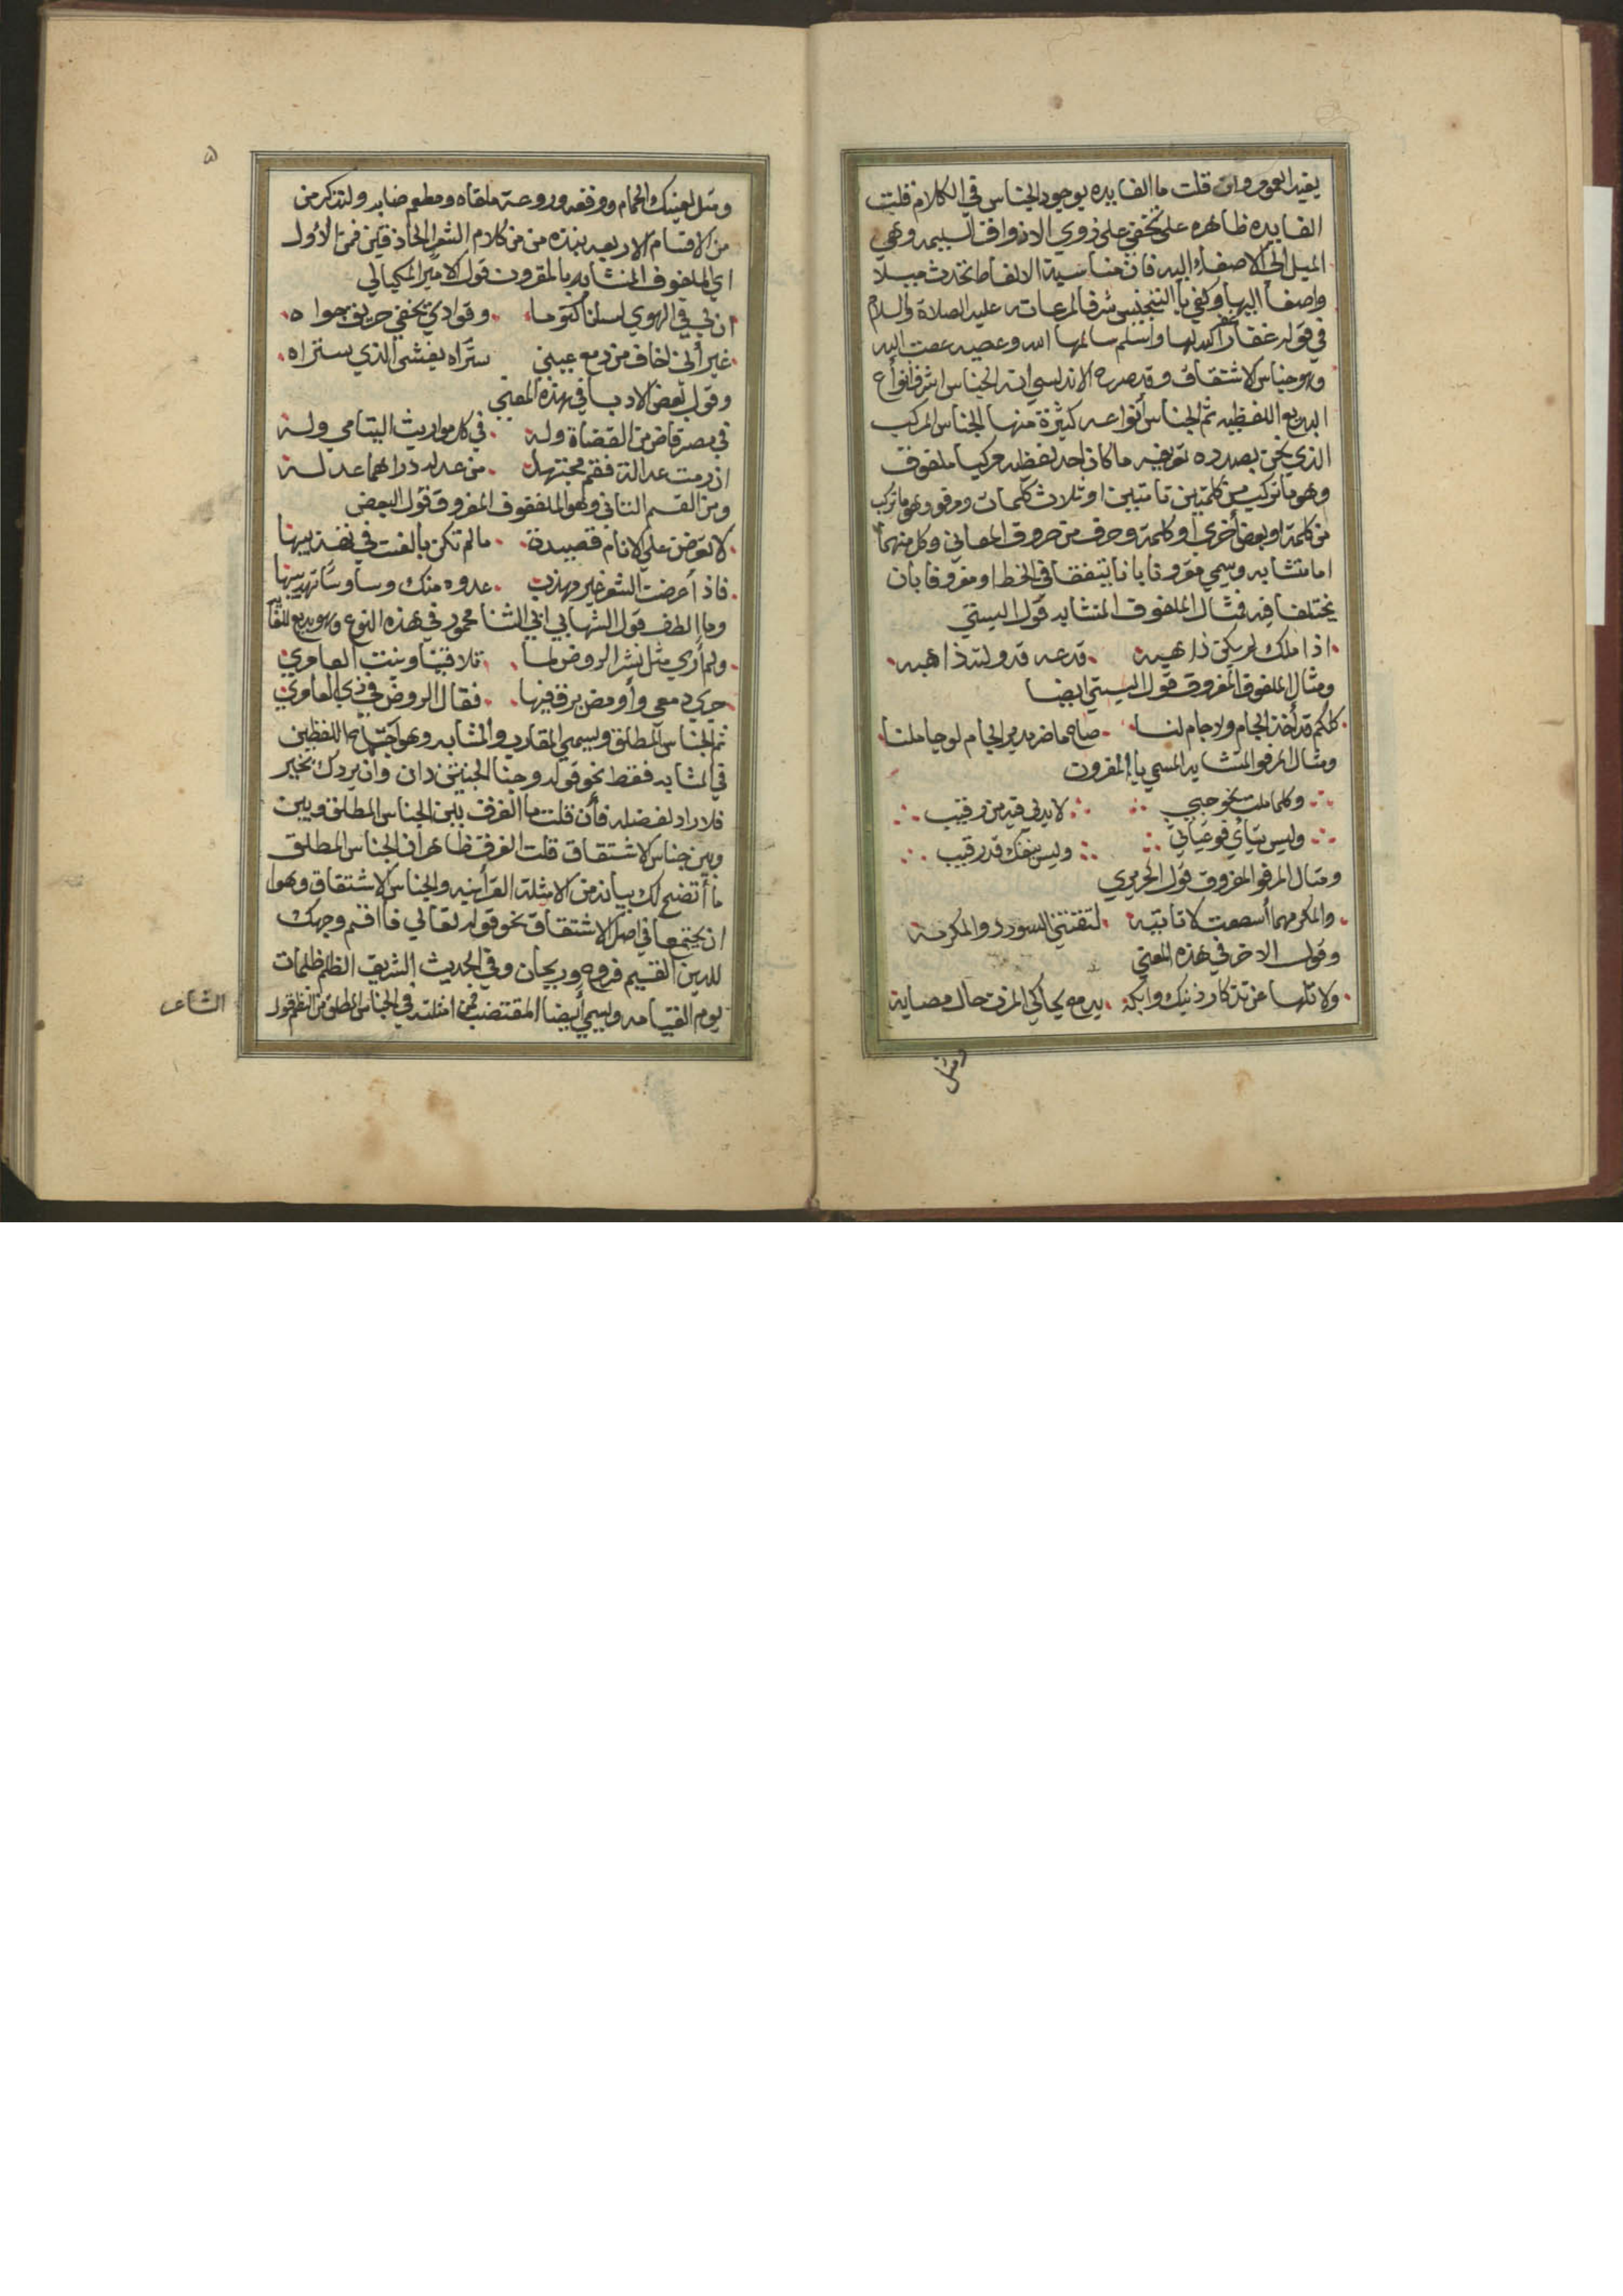 يفيد العموم وان قلت ما الفايده بوجود الجناس في الكلام قلت
الفايده ظاهره على تخفي على ذوي الاذواق السليمه وهي
الميل الي الاصغاء اليه فان مناسبة الالفاظ تحدث ميلا
واصغا اليها وكفي با التجنيس شرفا مرعاته عليه الصلاة والسلام
في قوله غفار غفر الله لها واسلم سالمها الله وعصيه عصت الله
وهو جناس الاشتقاق وقد صرح الاندلسي ان الجناس اشرف انواع
البديع اللفظيه ثم الجناس أنواعه كثيرة منها الجناس المركب
الذي نحن بصدده تعريفه ما كان احد لفظيه مركبا ملفوف
وهو ما تركب من كلمتين تامتين او ثلاث كلمات ومرفو وهو ما تركب
من كلمة او بعض أخري او كلمة وحرف من حروف المعاني وكل منهما
اما متشابه ويسمي مقرونا بانا يتفقا في الخط او مفروقا بان
يختلفا فيه فمثال الملفوف المتشابه قول البستي
اذا ملك لم يكن ذا هبه قدعه قدولته ذاهبه
ومثال الملفوف المفروق قول البستي ايضا
كلكم قد أخذ الجام ولا جام لنا ما ضر مدير الجام لو جاملنا
ومثال المرفو المتشابه المسمي با المقرون
وكلما ملت نحو حبي لابد لي فيه من رقيب
وليس وليس ينفك قد رقيب
ومثال المرفو المفروق قول الحريري
والمكر مهما أسطعت لا تاتيه لتقتني السودد والمكرمة
وقول الاخر في هذه المعني
ولا تلها عن تذكار ذنبك وابكه بدمع يحاكي المزن حال مصابه
ومثل
٥
ومثل لعينيك الحمام ووقعه وروعة ملقاه ومطعم صابه ولنذكر من
من الاقسام الاربعه بنذه من من كلام الشعرا الحاذقين فمن الاول
اي الملفوف المتشابه بالمقرون قول الامير الميكيالي
ان لي في الهوي لسانا كتوما وفوادي يخفي حريق جواه
غير أني اخاف من دمع عيني ستراه يفشي الذي ستراه
وقول بعض الادبا في هذه المعني
في مصر قاض من القضاة وله في كل مواريث اليتامي وله
ان رمت عدالة فقم مجتهدا من عدله دراهما عدله
ومن القسم الثاني وهو الملفقوف المفروق قول البعض
لا تعرضن علي الانام قصيدة ما لم تكن بالغت في تهذيبها
فاذا أعرضت الشعر غير مهذب عدوه منك وساوسا تهذي بها
وما الطف قول الشهابي ابي الثنا محمود في هذه النوع وهو بديع للغايه
ولم أري مثل نشر الروض لما تلاقينا وبنت العامري
جري دمعي وأومض برق فيها فقال الروض في ذي العام ري
ثم الجناس المطلق ويسمي المقارب والمشابه وهو اجتماع اللفظين
في المشابه فقط نحو قوله وجنا الجنتين دان وان يردك بخير
فلا راد لفضله فأن قلت ما الفرق بين الجناس المطلق وبين
وبين جناس الاشتقاق قلت الفرق ظاهر ان الجناس المطلق
ما أتضح لك بيانه من الامثلة القرأنيه والجناس الاشتقاق وهوا
ان يجتمعا في اصل الاشتقاق نحو قوله تعالي فا اقم وجهك
للدين القيم فروح وريحان وفي الحديث الشريف الظلم ظلمات
يوم القيامه ويسمي أيضا المقتضب فمن امثلته في الجناس المطلق من النظم قول
الشاعر